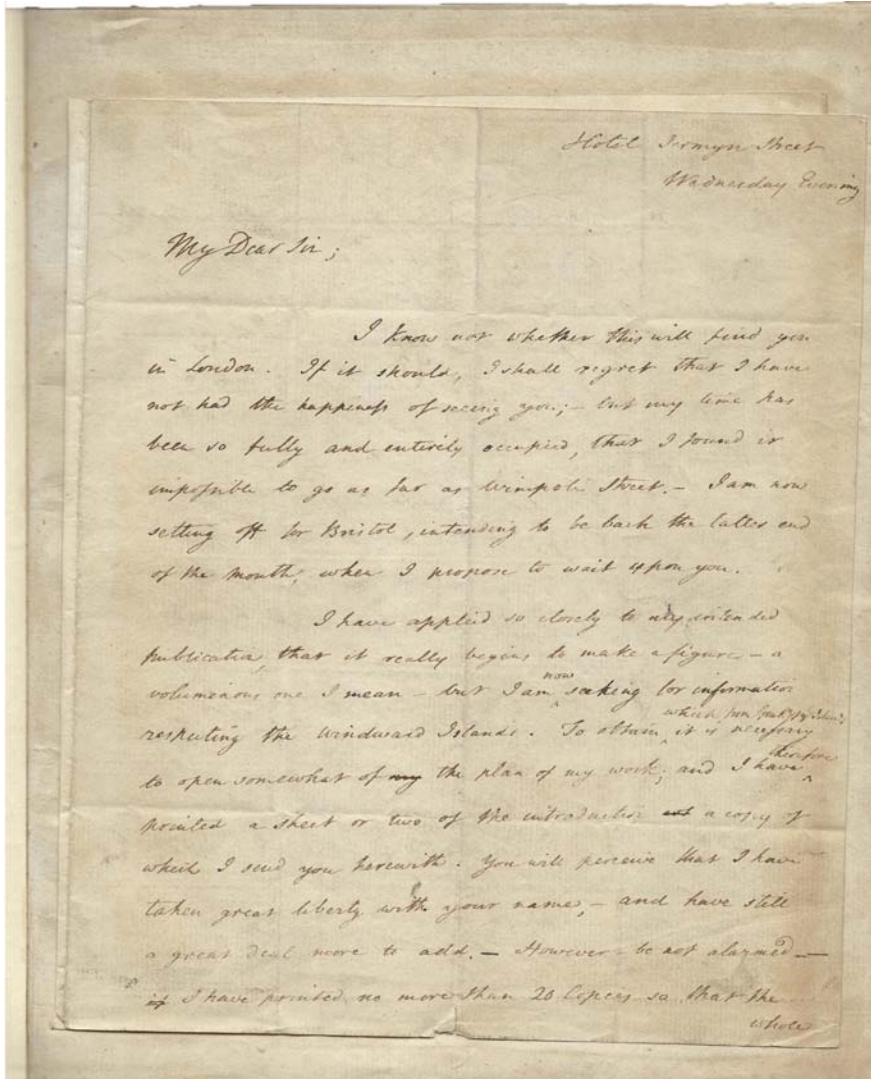 Hotel Jermyn Street
Wednesday Evening
My Dear Sir;
I know not whether this will find you
in London. If it should, I shall regret that I have
not had the happiness of seeing you; – but my time has
been so fully and entirely occupied, that I found it
impossible to go as far as Wimpole Street. – I am now
setting off for Bristol, intending to be back the latter end
of the Month, when I propose to wait upon you.
I have applied so closely to my intended
publication, that it really begins to make a figure – a
now
voluminous one I mean – but I am ^ seeking for information
which from
respecting the Windward Islands. To obtain ^ it is necessary
therefore
to open somewhat of my the plan of my work; and I have ^
printed a sheet or two of the introduction a copy of
which I send you herewith. You will perceive that I have
taken great liberty with your name, – and have still
a great deal more to add. – However – be not alarmed –
if I have printed no more than 20 Copies so that the
whole